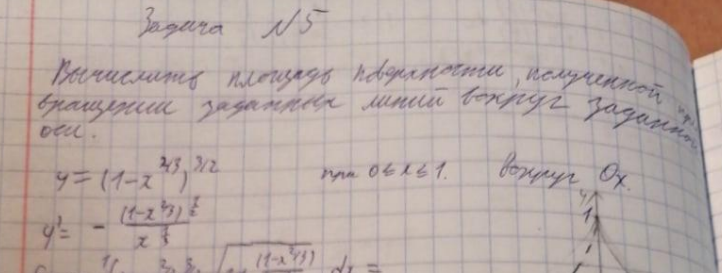 Задача №5
Вычислить площадь поверхности, полученной при
вращении заданных линий вокруг заданной
оси.
y = (1-x^{2/3})^{3/2} при 0≤x≤1. вокруг Ox.
y' = - \frac{(1-x^{2/3})^{\frac{1}{2}}}{x^{\frac{1}{3}}}
y
1